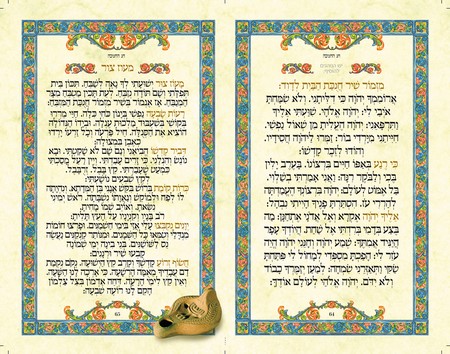 חג החנוכה
מִזְמוֹר שִׁיר חֲנֻכַּת הַבַּיִת לְדָוִד:
אֲרוֹמִמְךָ יְהֹוָה כִּי דִלִּיתָנִי. וְלֹא שִׂמַּחְתָּ
אֹיְבַי לִי: יְהֹוָה אֱלֹהָי. שִׁוַּעְתִּי אֵלֶיךָ
וַתִּרְפָּאֵנִי: יְהֹוָה הֶעֱלִיתָ מִן שְׁאוֹל נַפְשִׁי.
חִיִּיתַנִי מִיָּרְדִי בוֹר: זַמְּרוּ לַיהֹוָה חֲסִידָיו.
וְהוֹדוּ לְזֵכֶר קָדְשׁוֹ:
כִּי רֶגַע בְּאַפּוֹ חַיִּים בִּרְצוֹנוֹ. בָּעֶרֶב יָלִין
בֶּכִי וְלַבֹּקֶר רִנָּה: וַאֲנִי אָמַרְתִּי בְשַׁלְוִי.
בַּל אֶמּוֹט לְעוֹלָם: יְהֹוָה בִּרְצוֹנְךָ הֶעֱמַדְתָּה
לְהַרְרִי עֹז. הִסְתַּרְתָּ פָנֶיךָ הָיִיתִי נִבְהָל:
אֵלֶיךָ יְהֹוָה אֶקְרָא וְאֶל אֲדֹנָי אֶתְחַנָּן: מַה
בֶּצַע בְּדָמִי בְּרִדְתִּי אֶל שָׁחַת. הֲיוֹדְךָ עָפָר
הֲיַגִּיד אֲמִתֶּךָ: שְׁמַע יְהֹוָה וְחָנֵּנִי יְהֹוָה הֱיֵה
עֹזֵר לִי: הָפַכְתָּ מִסְפְּדִי לְמָחוֹל לִי פִּתַּחְתָּ
שַׂקִּי וַתְּאַזְּרֵנִי שִׂמְחָה: לְמַעַן יְזַמֶּרְךָ כָבוֹד
וְלֹא יִדֹּם. יְהֹוָה אֱלֹהַי לְעוֹלָם אוֹדֶךָּ:
64
חג החנוכה
מעוז צור
מָעוֹז צוּר יְשׁוּעָתִי לְךָ נָאֶה לְשַׁבֵּחַ. תִּכּוֹן בֵּית
תְּפִלָּתִי וְשָׁם תּוֹדָה נְזַבֵּחַ. לְעֵת תָּכִין מַטְבֵּחַ מִצָּר
הַמְנַבֵּחַ. אָז אֶגְמוֹר בְּשִׁיר מִזְמוֹר חֲנֻכַּת הַמִּזְבֵּחַ:
רָעוֹת שָׂבְעָה נַפְשִׁי בְּיָגוֹן כֹּחִי כָּלָה. חַיַּי מֵרְרוּ
בְּקוֹשִׁי בְּשִׁעְבּוּד מַלְכוּת עֶגְלָה. וּבְיָדוֹ הַגְּדוֹלָה
הוֹצִיא אֶת הַסְּגֻלָּה. חֵיל פַּרְעֹה וְכָל זַרְעוֹ יָרְדוּ
כְּאֶבֶן בִּמְצוּלָה:
דְּבִיר קָדְשׁוֹ הֱבִיאַנִי וְגַם שָׁם לֹא שָׁקַטְתִּי. וּבָא
נוֹגֵשׂ וְהִגְלַנִי. כִּי זָרִים עָבַדְתִּי. וְיֵין רַעַל מָסַכְתִּי
כִּמְעַט שֶׁעָבַרְתִּי. קֵץ בָּבֶל זְרֻבָּבֶל.
לְקֵץ שִׁבְעִים נוֹשַׁעְתִּי:
כְּרוֹת קוֹמַת בְּרוֹשׁ בִּקֵּשׁ אֲגָגִי בֶּן הַמְּדָתָא. וְנִהְיָתָה
לוֹ לְפַח וּלְמוֹקֵשׁ וְגַאֲוָתוֹ נִשְׁבָּתָה. רֹאשׁ יְמִינִי
נִשֵּׂאתָ. וְאוֹיֵב שְׁמוֹ מָחִיתָ.
רֹב בָּנָיו וְקִנְיָנָיו עַל הָעֵץ תָּלִיתָ:
יְוָנִים נִקְבְּצוּ עָלַי אֲזַי בִּימֵי חַשְׁמַנִּים. וּפָרְצוּ חוֹמוֹת
מִגְדָּלַי וְטִמְּאוּ כָּל הַשְּׁמָנִים. וּמִנּוֹתַר קַנְקַנִּים נַעֲשָׂה
נֵס לַשּׁוֹשַׁנִּים. בְּנֵי בִינָה יְמֵי שְׁמוֹנָה
קָבְעוּ שִׁיר וּרְנָנִים:
חֲשׂוֹף זְרוֹעַ קָדְשֶׁךָ וְקָרֵב קֵץ הַיְשׁוּעָה. נְקֹם נִקְמַת
דַּם עֲבָדֶיךָ מֵאֻמָּה הָרְשָׁעָה. כִּי אָרְכָה לָנוּ הַשָּׁעָה.
וְאֵין קֵץ לִימֵי הָרָעָה. דְּחֵה אַדְמוֹן בְּצֵל צַלְמוֹן
הָקֵם לָנוּ רוֹעֶה שִׁבְעָה:
65